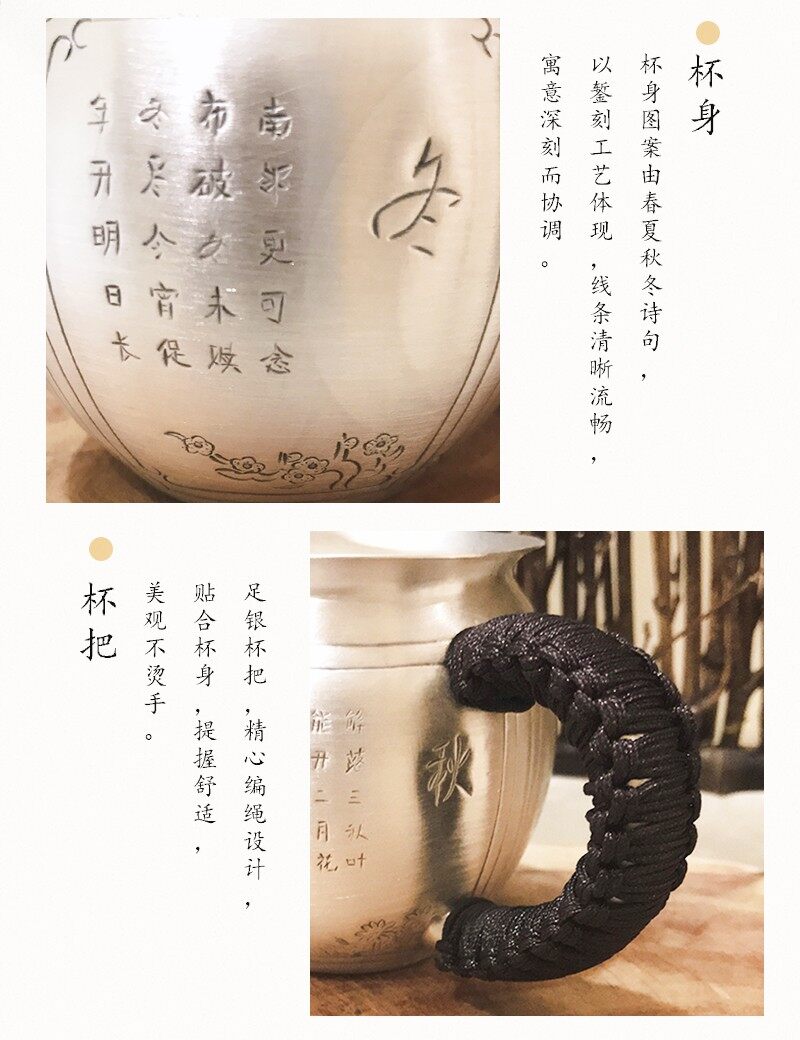 杯身
杯身图案由春夏秋冬诗句，
以錾刻工艺体现，线条清晰流畅，
寓意深刻而协调。
冬
南邻更可念
布破未赎
冬尽今宵促
年开明日长
杯把
足银杯把，精心编绳设计，
贴合杯身，提握舒适，
美观不烫手。
秋
解落三秋叶
能开二月花